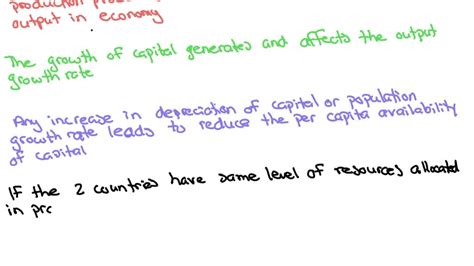 production
output in economy
The growth of capital generates and affects the output
growth rate
Any increase in depreciation of capital or population
growth rate leads to reduce the per capita availability
of capital
IF the 2 countries have same level of resources allocated
in prc